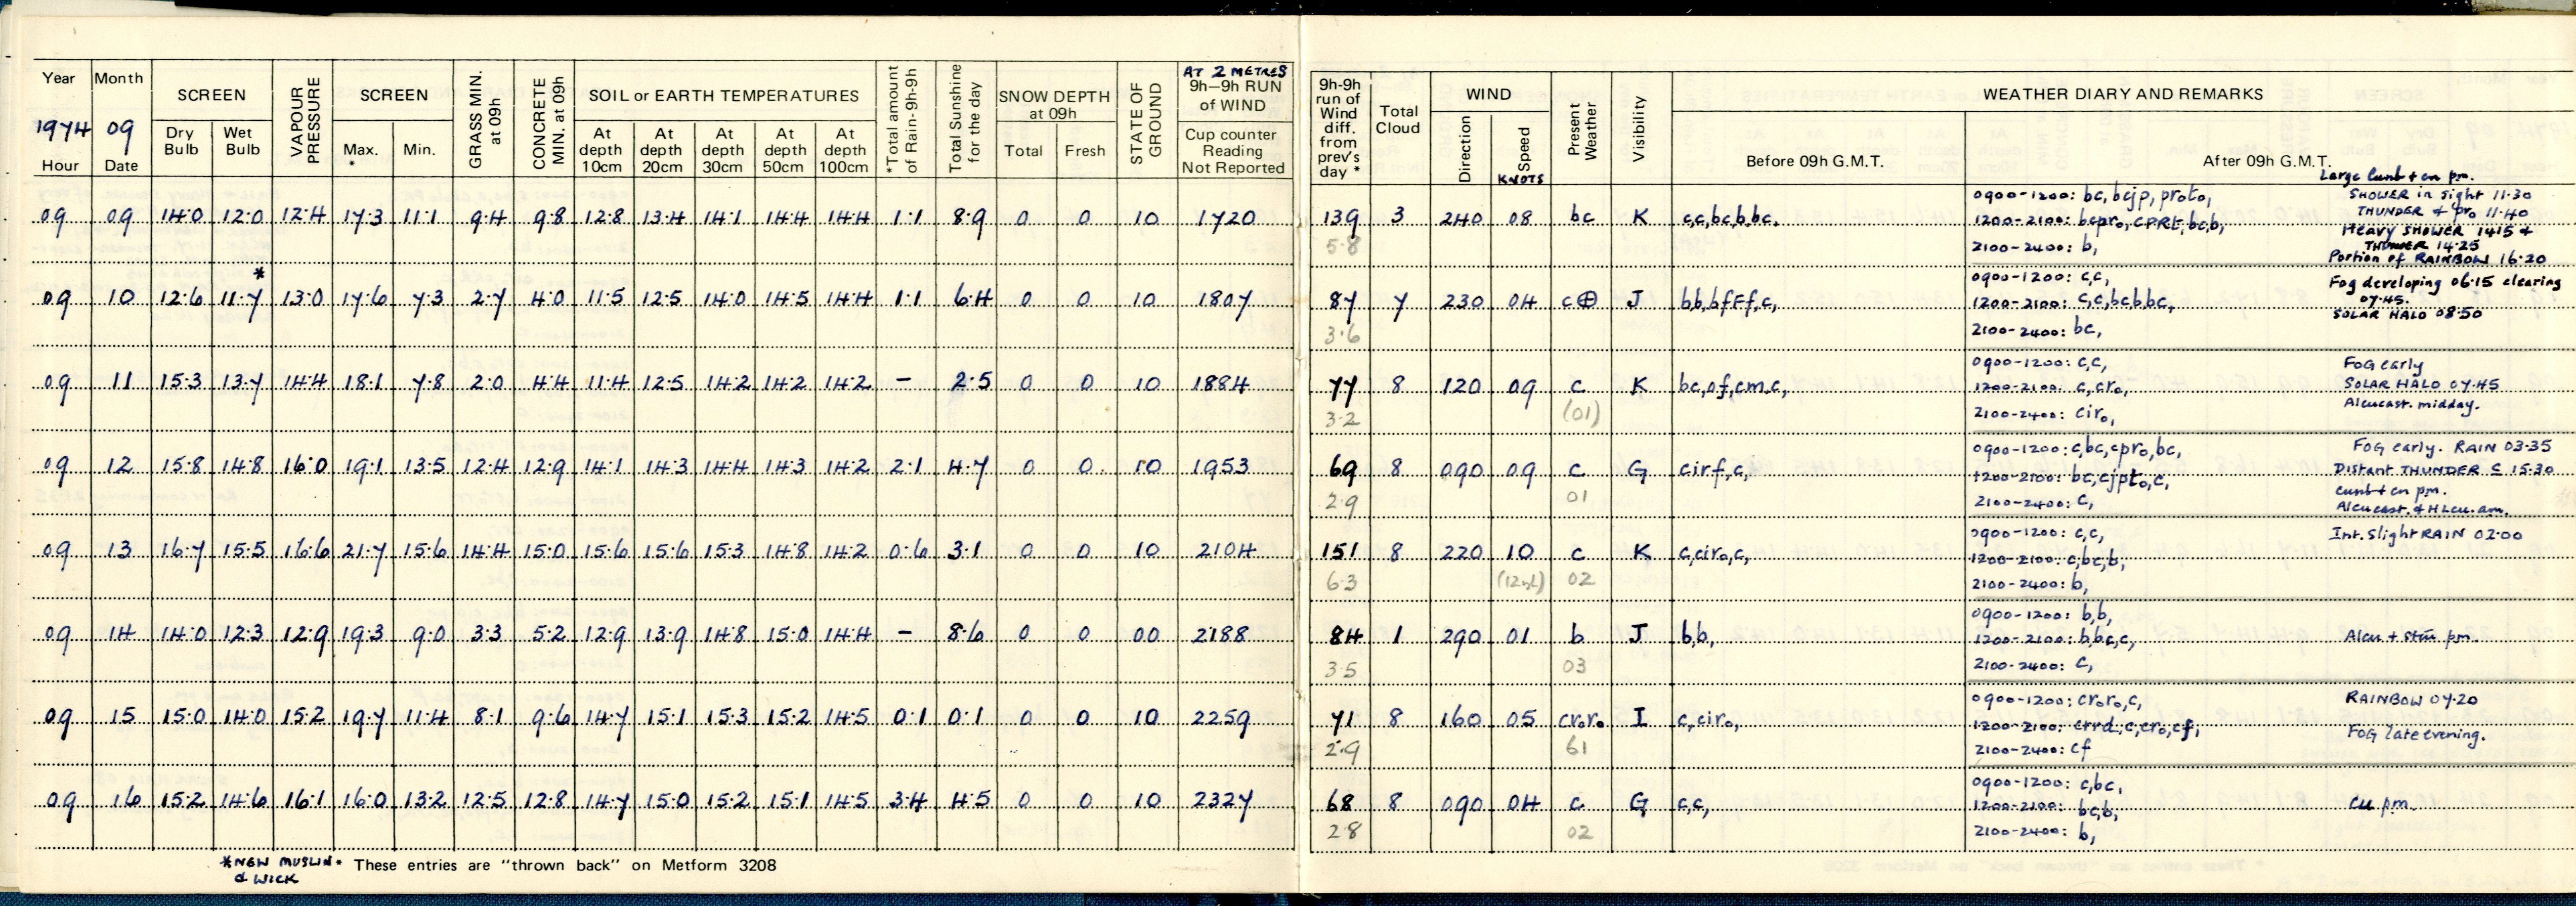 Year Month SCREEN VAPOUR PRESSURE SCREEN GRASS MIN. at 09h CONCRETE MIN. at 09h SOIL or EARTH TEMPERATURES *Total amount of Rain-9h-9h Total Sunshine for the day SNOW DEPTH at 09h STATE OF GROUND AT 2 METRES 9h-9h RUN of WIND
1974 09
Hour Date Dry Bulb Wet Bulb Max. * Min. At depth 10cm At depth 20cm At depth 30cm At depth 50cm At depth 100cm Total Fresh Cup counter Reading Not Reported
09 09 14.0 12.0 12.4 17.3 11.1 9.4 9.8 12.8 13.4 14.1 14.4 14.4 1.1 8.9 0 0 10 1720
*
09 10 12.6 11.7 13.0 17.6 7.3 2.7 4.0 11.5 12.5 14.0 14.5 14.4 1.1 6.4 0 0 10 1807
09 11 15.3 13.7 14.4 18.1 7.8 2.0 4.4 11.4 12.5 14.2 14.2 14.2 – 2.5 0 0 10 1884
09 12 15.8 14.8 16.0 19.1 13.5 12.4 12.9 14.1 14.3 14.4 14.3 14.2 2.1 4.7 0 0 10 1953
09 13 16.7 15.5 16.6 21.7 15.6 14.4 15.0 15.6 15.6 15.3 14.8 14.2 0.6 3.1 0 0 10 2104
09 14 14.0 12.3 12.9 19.3 9.0 3.3 5.2 12.9 13.9 14.8 15.0 14.4 – 8.6 0 0 00 2188
09 15 15.0 14.0 15.2 19.7 11.4 8.1 9.6 14.7 15.1 15.3 15.2 14.5 0.1 0.1 0 0 10 2259
09 16 15.2 14.6 16.1 16.0 13.2 12.5 12.8 14.7 15.0 15.2 15.1 14.5 3.4 4.5 0 0 10 2327
*NEW MUSLIN & WICK
* These entries are "thrown back" on Metform 3208
9h-9h run of Wind diff. from prev's day * Total Cloud WIND Present Weather Visibility WEATHER DIARY AND REMARKS
Direction Speed KNOTS Before 09h G.M.T. After 09h G.M.T.
139 3 240 08 bc K c,c,bc,b,bc.
5.8
0900-1200: bc, bcjp, proto,
1200-2100: bcpro, CPRt, bc,b,
2100-2400: b,
Large Cunb + cn pm.
SHOWER in sight 11.30
THUNDER & pro 11.40
HEAVY SHOWER 1415 +
THUNDER 14.25
Portion of RAINBOW 16.20
87 7 230 04 c⊕ J bb,bfFf,c,
3.6
0900-1200: c,c,
1200-2100: c,c,bc,b,bc,
2100-2400: bc,
Fog developing 06.15 clearing
07.45.
SOLAR HALO 08.50
77 8 120 09 c K bc,of,cm,c,
3.2 (01)
0900-1200: c,c,
1200-2100: c,cro,
2100-2400: ciro,
FOG early
SOLAR HALO 07.45
Alcucast. midday.
69 8 090 09 c G cirf,c,
2.9 01
0900-1200: c,bc,cpro,bc,
1200-2100: bc,cjpto,c,
2100-2400: c,
FOG early. RAIN 03.35
Distant THUNDER S 15.30
cunb + cn pm.
Alcucast. & HLcu. am.
151 8 220 10 c K c,ciro,c,
6.3 02
0900-1200: c,c,
1200-2100: c,bc,b,
2100-2400: b,
Int. Slight RAIN 02.00
84 1 290 01 b J b,b,
3.5 03
0900-1200: b,b,
1200-2100: b,bc,c,
2100-2400: c,
Alcu + pm.
71 8 160 05 croro I c,ciro,
2.9 61
0900-1200: croro,c,
1200-2100: crrd,c,cro,cf,
2100-2400: cf
RAINBOW 07.20
FOG late evening.
68 8 090 04 c G c,c,
2.8 02
0900-1200: c,bc,
1200-2100: bc,b,
2100-2400: b,
Cu pm.